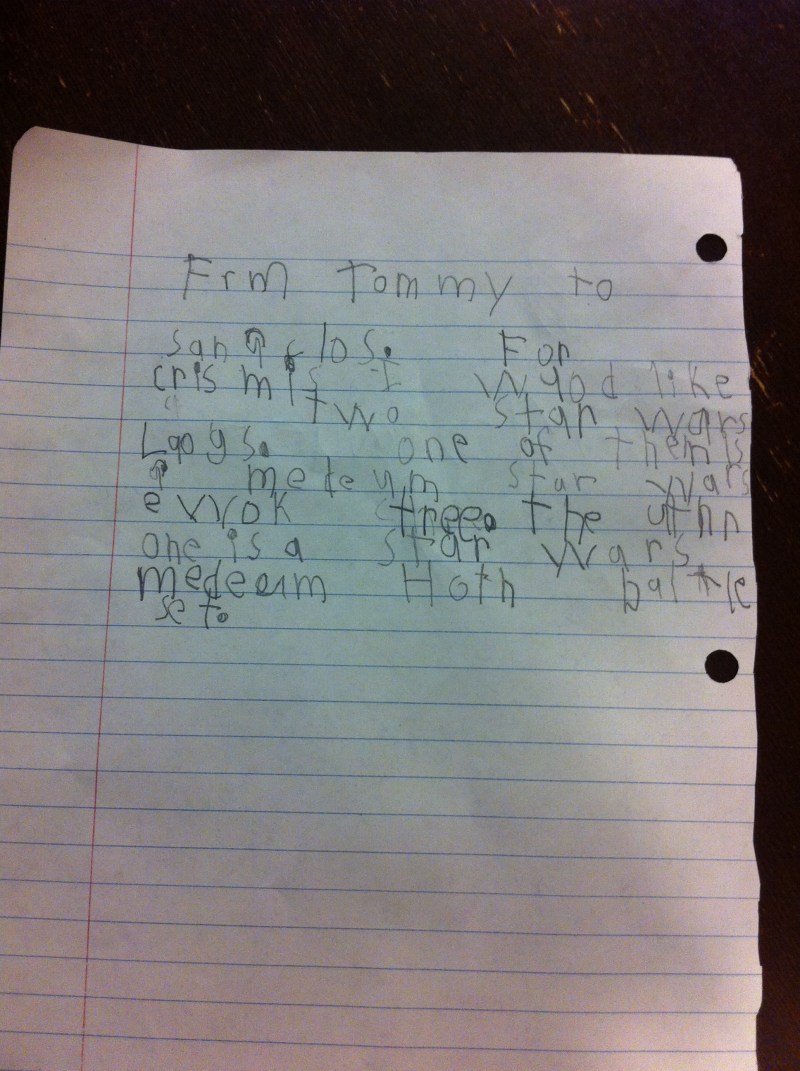 Frm Tommy to
san a clos. For
cris mis I wuod like
two star wars
Laogs. one of them is
a medeum star wars
e wok tree. the uthr
one is a star wars
medeum Hoth baltle
set.